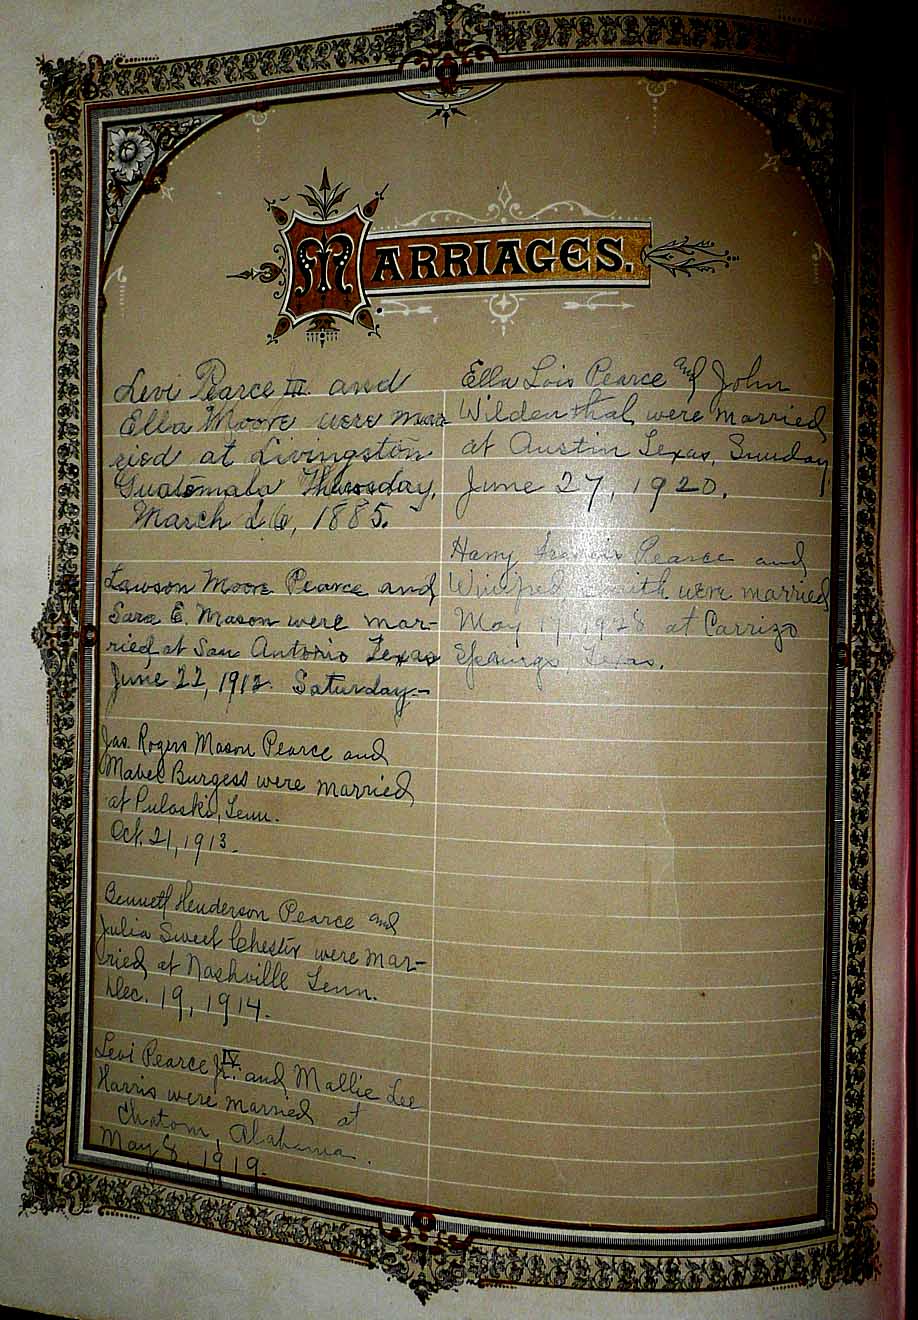 MARRIAGES.
Levi Pearce III. and
Ella Moore were mar-
ried at Livingston
Guatemala Thursday,
March 26, 1885.
Lawson Moore Pearce and
Sara E. Mason were mar-
ried at San Antonio Texas
June 22, 1912. Saturday-
Jas. Rogers Mason Pearce and
Mabel Burgess were married
at Pulaski, Tenn.
Oct. 21, 1913.
Bennett Henderson Pearce and
Julia Sweet Chester were mar-
ried at Nashville Tenn.
Dec. 19, 1914.
Levi Pearce Jr. IV and Mallie Lee
Harris were married at
Chatom, Alabama.
May 8, 1919.
Ella Lois Pearce and John
Wildenthal were married
at Austin Texas, Sunday,
June 27, 1920.
Harry Francis Pearce and
Winifred Smith were married
May 17, 1928 at Carrizo
Springs, Texas.